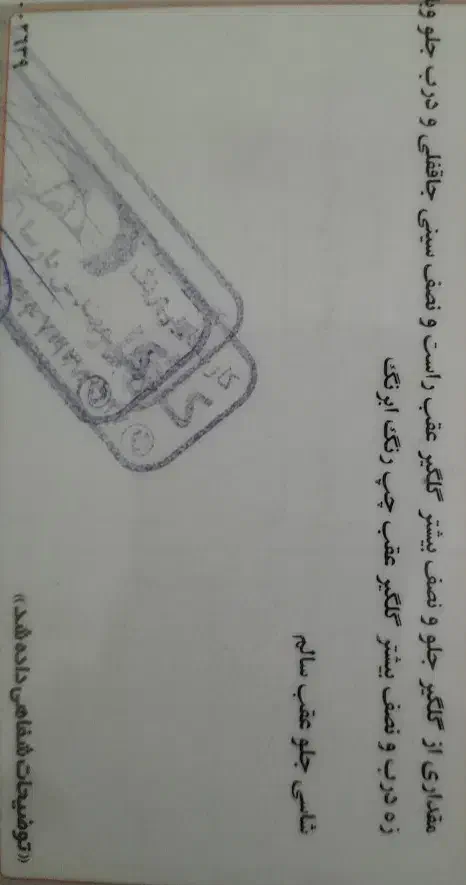 مقداری از گلگیر جلو و نصف بیشتر گلگیر عقب راست و نصف سینی جاقفلی و درب جلو
زه درب و نصف بیشتر گلگیر عقب چپ رنگ ابرنگ
شاسی جلو عقب سالم
«توضیحات شفاهی داده شد»
۳۶۳۹